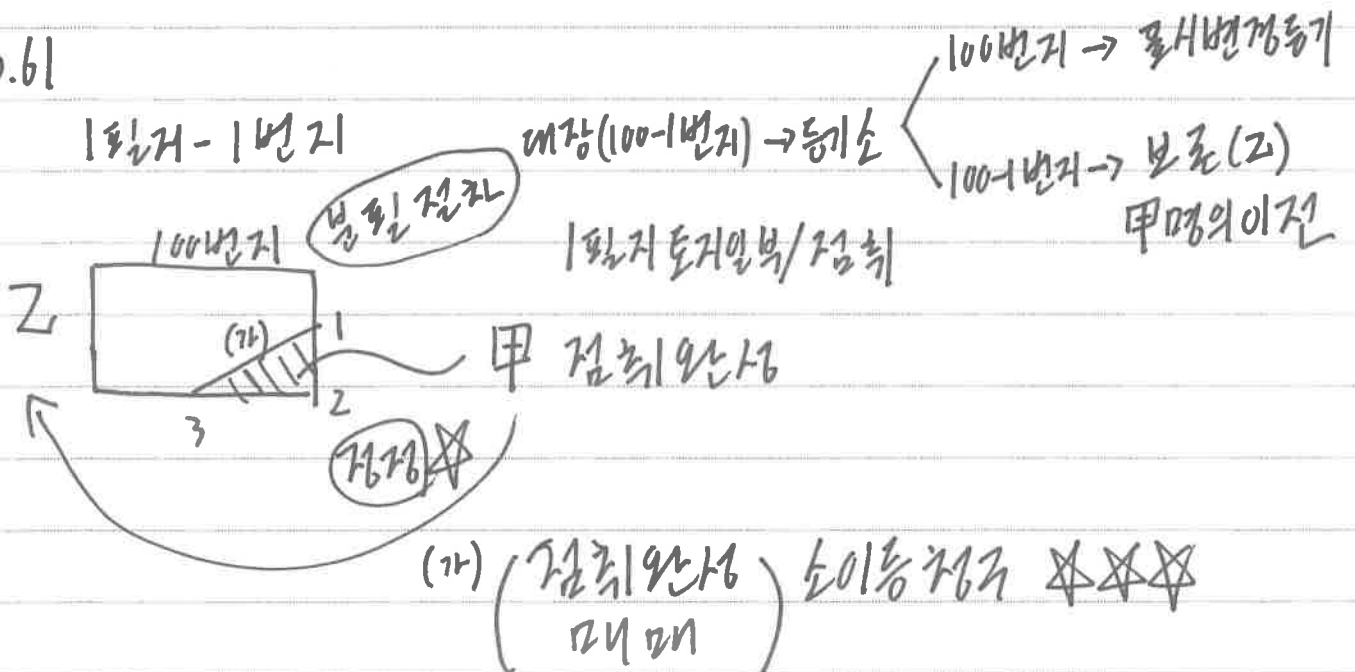 p.61
1필지-1번지
분필절차
대장(100-1번지)→등기소
100번지→표시변경등기
100-1번지→보존(乙)
甲명의이전
100번지
1필지토지일부/점취
乙
(가)
1
2
3
甲 점취완성
점정☆
(가) (점취완성
매매) 소이등청구 ☆☆☆